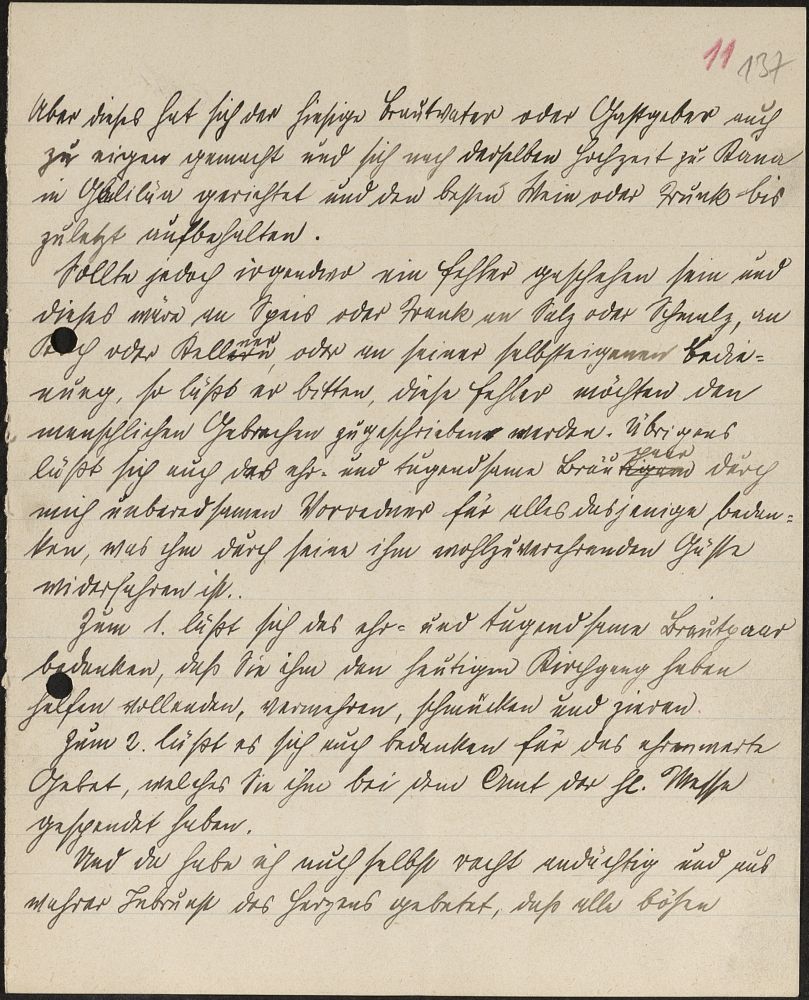 11 137
Aber dieses hat sich der hiesige Brautvater oder Gastgeber auch
zu eigen gemacht und sich nach derselben Hochzeit zu Kana
in Galiläa gerichtet und den besten Wein oder Trunk bis
zuletzt aufbehalten.
Sollte jedoch irgendwo ein Fehler geschehen sein und
dieses wäre an Speis oder Trank an Salz oder Schmalz, an
Koch oder Kellner, oder an seiner selbsteigenen Bedie-
nung, so läßt er bitten, diese Fehler möchten den
menschlichen Gebrechen zugeschrieben werden. Übrigens
läßt sich auch das ehr- und tugendsame Brautpaar durch
mich unberedsamen Vorredner für alles dasjenige bedan-
ken, was ihm durch seine ihm wohlzuverehrenden Gäste
widerfahren ist.
Zum 1. läßt sich das ehr- und tugendsame Brautpaar
bedanken, daß Sie ihm den heutigen Kirchgang haben
helfen vollenden, vermehren, schmücken und zieren.
Zum 2. läßt es sich auch bedanken für das ehrenwerte
Gebet, welches Sie ihm bei dem Amt der hl. Messe
gespendet haben.
Und da habe ich auch selbst recht andächtig und aus
wahrer Inbrunst des Herzens gebetet, daß alle bösen